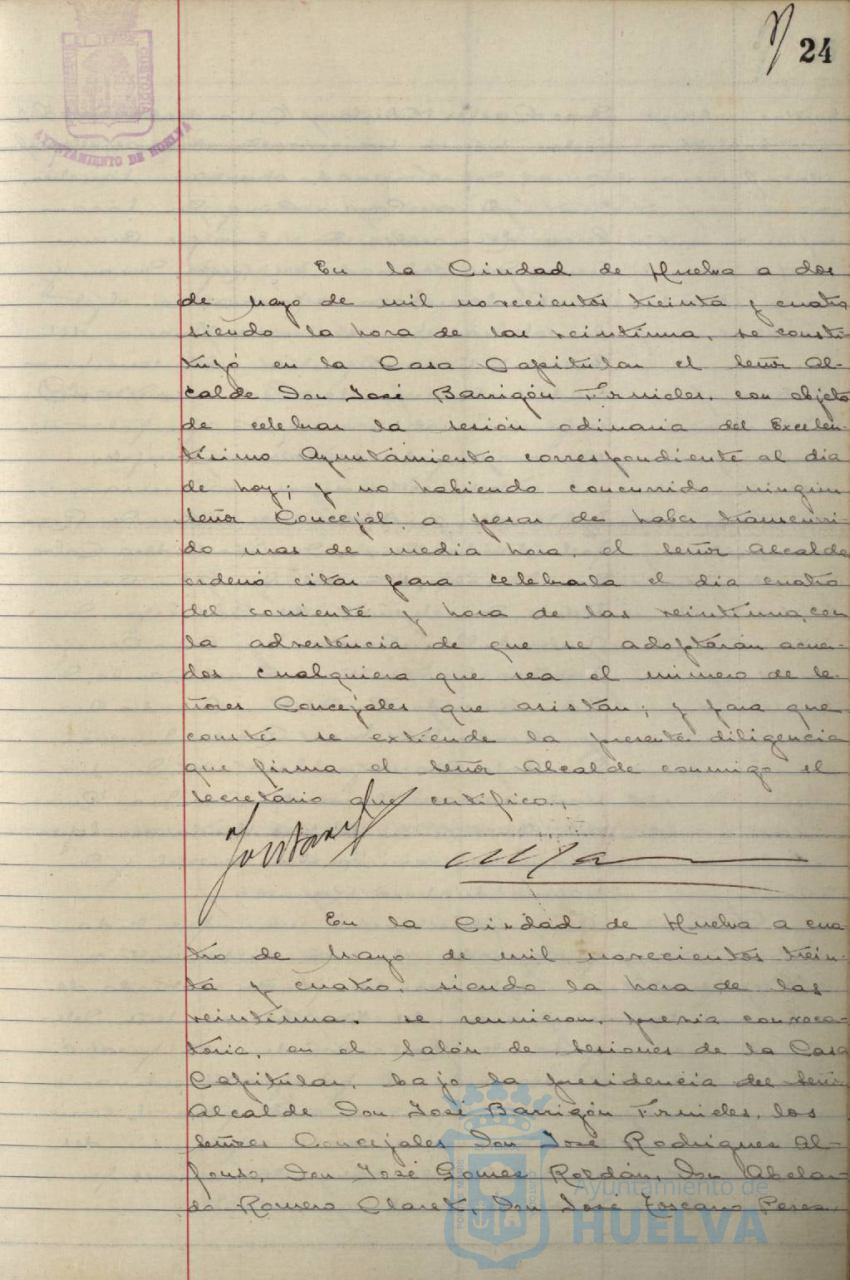 24
AYUNTAMIENTO DE HUELVA
En la Ciudad de Huelva a dos
de Mayo de mil novecientos treinta y cuatro
siendo la hora de las veintiuna, se consti-
tuyó en la Casa Capitular el Señor Al-
calde Don José Barrigón Fornieles, con objeto
de celebrar la sesión odinaria del Excelen-
tísimo Ayuntamiento correspondiente al dia
de hoy; y no habiendo concurrido ningún
Señor Concejal, a pesar de haber transcurri-
do mas de media hora, el Señor Alcalde
ordenó citar para celebrarla el dia cuatro
del corriente y hora de las veintiuna, con
la advertencia de que se adoptarán acuer-
dos cualquiera que sea el número de Se-
ñores Concejales que asistan; y para que
conste se extiende la presente diligencia
que firma el Señor Alcalde conmigo el
Secretário que certifico.
En la Ciudad de Huelva a cua-
tro de Mayo de mil novecientos trein-
ta y cuatro, siendo la hora de las
veintiuna, se reunieron, previa convoca-
toria, en el Salón de Sesiones de la Casa
Capitular, bajo la presidencia del Señor
Alcalde Don José Barrigón Fornieles, los
Señores Concejales Don José Rodriguez Al-
fonso, Don José Gomez Roldán, Don Abelar-
do Romero Claret, Don José Toscano Perez,
Ayuntamiento de
HUELVA